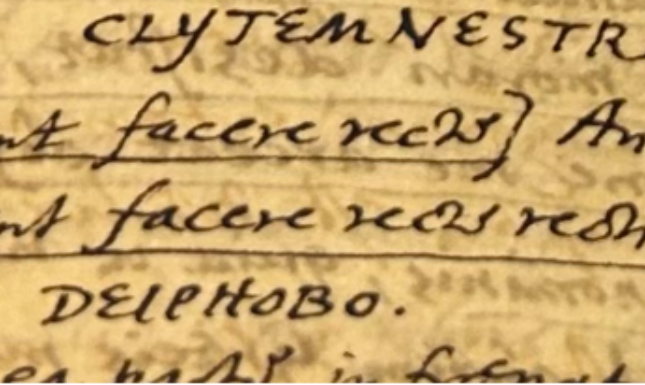 CLYTEMNESTR
nt facere rects] An
nt facere rects
DEIPHOBO.
in